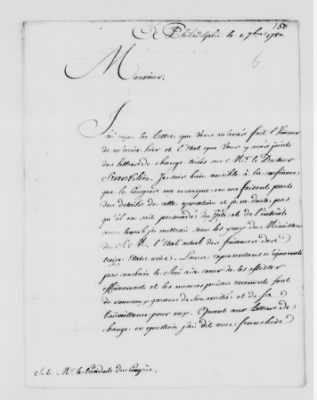 150
Philadelphie le 2 9bre 1780
6
Monsieur,
J'ai reçu la Lettre que Vous m'aviés fait l'honneur
de m'écrire hier et l'état que Vous y avés joint
des lettres de change tirées sur Mr. le Docteur
Franklin. Je suis bien sensible à la confiance
que le Congrès me marque en me faisant part
des détails de cette opération et je ne doute pas
qu'il ne soit persuadé du zèle et de l'intérêt
avec lequel je mettrai sous les yeux des Ministres
de S. M. l'état actuel des finances des
treize états unis. Leurs représentations
pas combien le Roi a à coeur de les assister
efficacement et les mesures prises récemment sont
de nouveaux garans de son amitié et de sa
bienveillance pour eux. Quant aux lettres de
change en question j'ai dit avec franchise
S. E. Mr. le Président du Congrès.